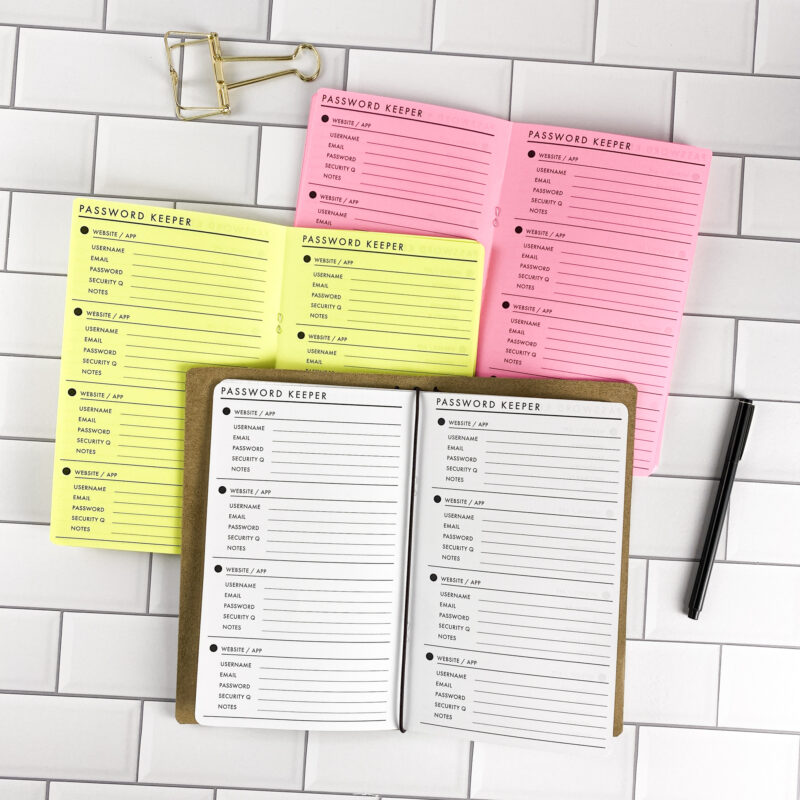 PASSWORD KEEPER
WEBSITE / APP
USERNAME
EMAIL
PASSWORD
SECURITY Q
NOTES
WEBSITE / APP
USERNAME
EMAIL
PASSWORD KEEPER
WEBSITE / APP
USERNAME
EMAIL
PASSWORD
SECURITY Q
NOTES
WEBSITE / APP
USERNAME
EMAIL
PASSWORD
SECURITY Q
NOTES
WEBSITE / APP
USERNAME
EMAIL
PASSWORD
SECURITY Q
NOTES
PASSWORD KEEPER
WEBSITE / APP
USERNAME
EMAIL
PASSWORD
SECURITY Q
NOTES
WEBSITE / APP
USERNAME
EMAIL
PASSWORD
SECURITY Q
NOTES
WEBSITE / APP
USERNAME
EMAIL
PASSWORD
SECURITY Q
NOTES
WEBSITE / APP
USERNAME
EMAIL
PASSWORD
SECURITY Q
NOTES
PASSWORD KEEPER
WEBSITE / APP
USERNAME
EMAIL
PASSWORD
SECURITY Q
NOTES
WEBSITE / APP
USERNAME
EMAIL
PASSWORD KEEPER
WEBSITE / APP
USERNAME
EMAIL
PASSWORD
SECURITY Q
NOTES
WEBSITE / APP
USERNAME
EMAIL
PASSWORD
SECURITY Q
NOTES
WEBSITE / APP
USERNAME
EMAIL
PASSWORD
SECURITY Q
NOTES
WEBSITE / APP
USERNAME
EMAIL
PASSWORD
SECURITY Q
NOTES
PASSWORD KEEPER
WEBSITE / APP
USERNAME
EMAIL
PASSWORD
SECURITY Q
NOTES
WEBSITE / APP
USERNAME
EMAIL
PASSWORD
SECURITY Q
NOTES
WEBSITE / APP
USERNAME
EMAIL
PASSWORD
SECURITY Q
NOTES
WEBSITE / APP
USERNAME
EMAIL
PASSWORD
SECURITY Q
NOTES